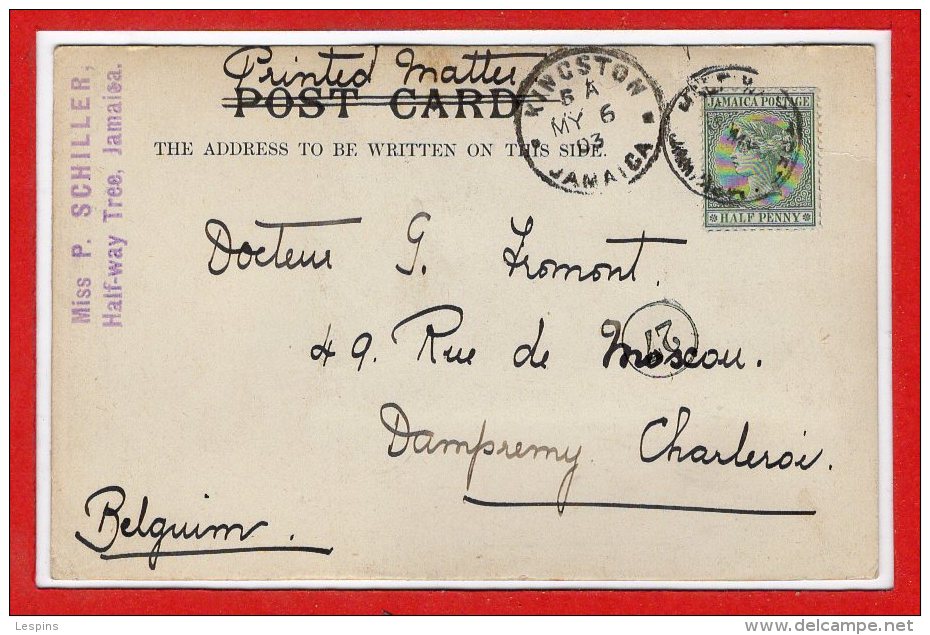 Printed Matter
POST CARD
THE ADDRESS TO BE WRITTEN ON THIS SIDE.
Miss P. SCHILLER,
Half-way Tree, Jamaica.
KINGSTON
5 A
MY 6
03
JAMAICA
JAMAICA POSTAGE
HALF PENNY
Docteur G. Fromont.
49. Rue de Moscou.
27
Dampremy. Charleroi.
Belguim.
Lespins
www.delcampe.net